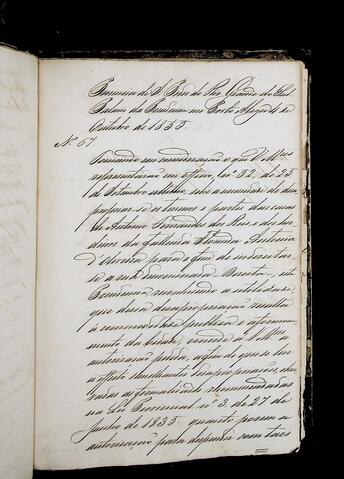 Provincia de S. Pedro do Rio Grande do Sul
Palacio da Presidencia em Porto Alegre 4 de
Outubro de 1855.
Nº 57.
Tomando em consideração o que V. Mces
representarão em officio nº 32, de 25
de Setembro ultimo, sobre a necessidade de desa
propriar-se os terrenos e partes das casas
de Antonio Fernandes dos Reis e dos her
deiros da fallecida Antonia
para o fim de endireitar
se a rua denominada esta
Presidencia, reconhecendo a utilidade
que dessa desapropriação resulta
á commodidade publica e aformosea
mento da Cidade, concede a V. Mces a
autorisação pedida, afim de que se leve
a effeito semelhante desapropriação, obser
vadas as formalidades recommendadas
na Lei Provincial nº 3 de 27 de
Junho de 1835; quanto porem a
autorisação para despender com taes